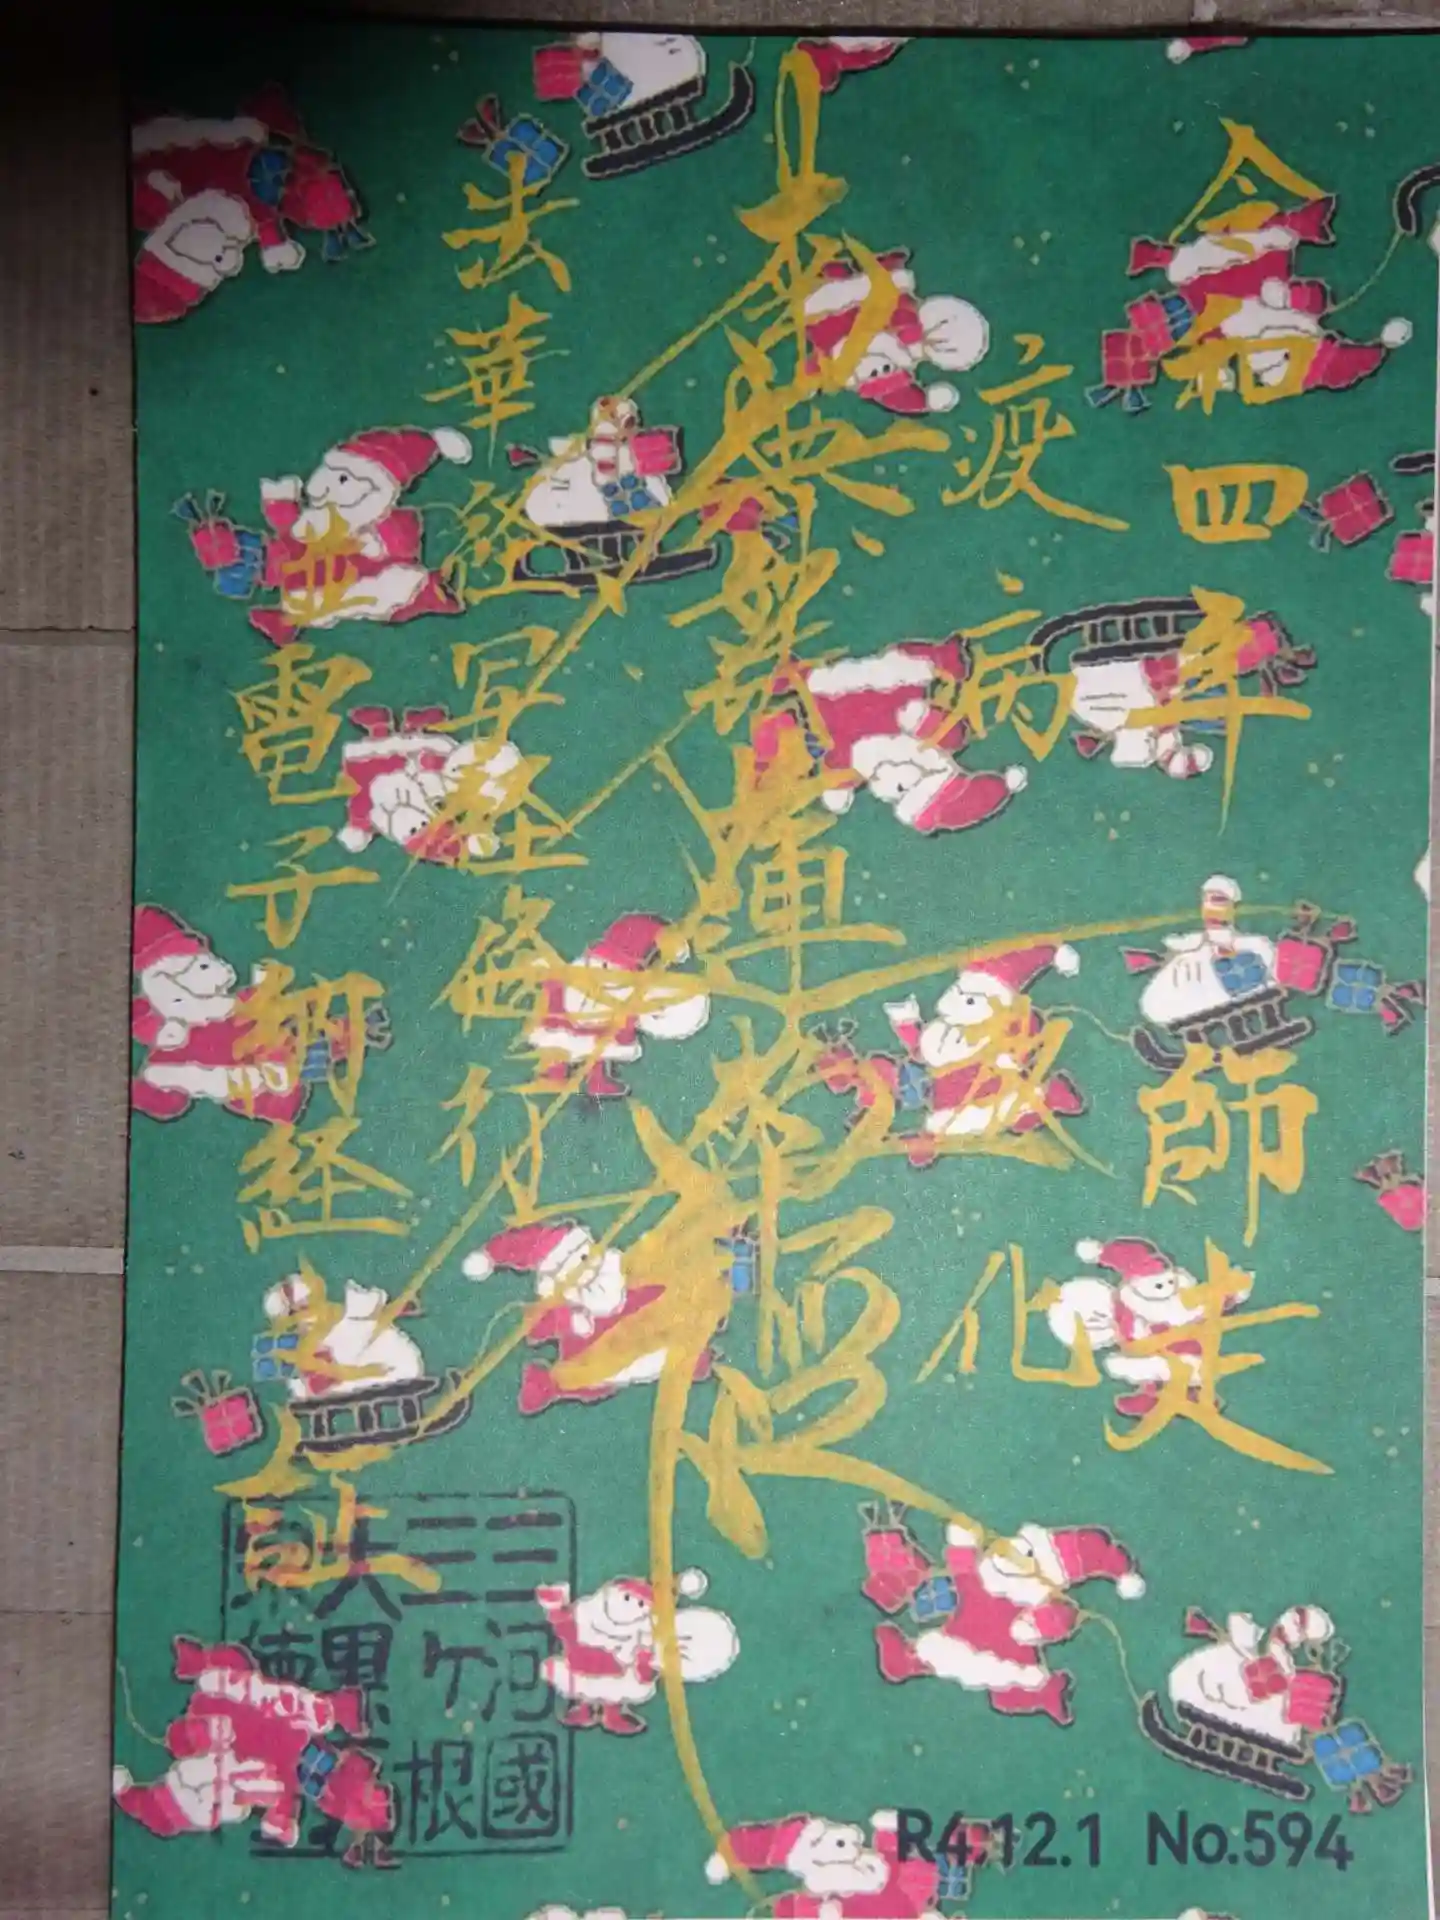 令和四年 師走
疫病 化
南無妙法蓮華経
法華経写経修行
並電子納経之証
三河國
三ヶ根
大黒
R4.12.1 No.594